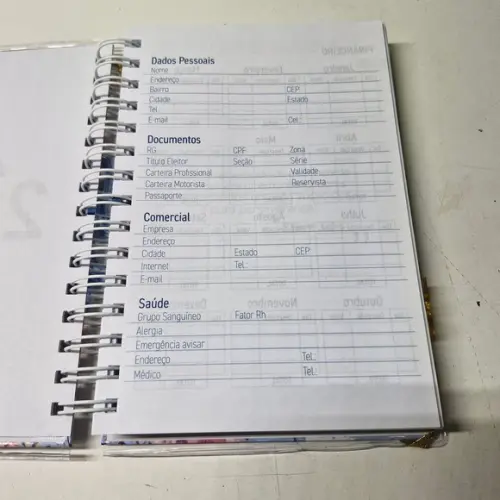 Dados Pessoais
Nome
Endereço
Bairro CEP
Cidade Estado
Tel.
E-mail Cel.
Documentos
RG CPF Zona
Título Eleitor Seção Série
Carteira Profissional Validade
Carteira Motorista Reservista
Passaporte
Comercial
Empresa
Endereço
Cidade Estado CEP:
Internet Tel.:
E-mail
Saúde
Grupo Sanguíneo Fator Rh
Alergia
Emergência avisar
Endereço Tel.:
Médico Tel.